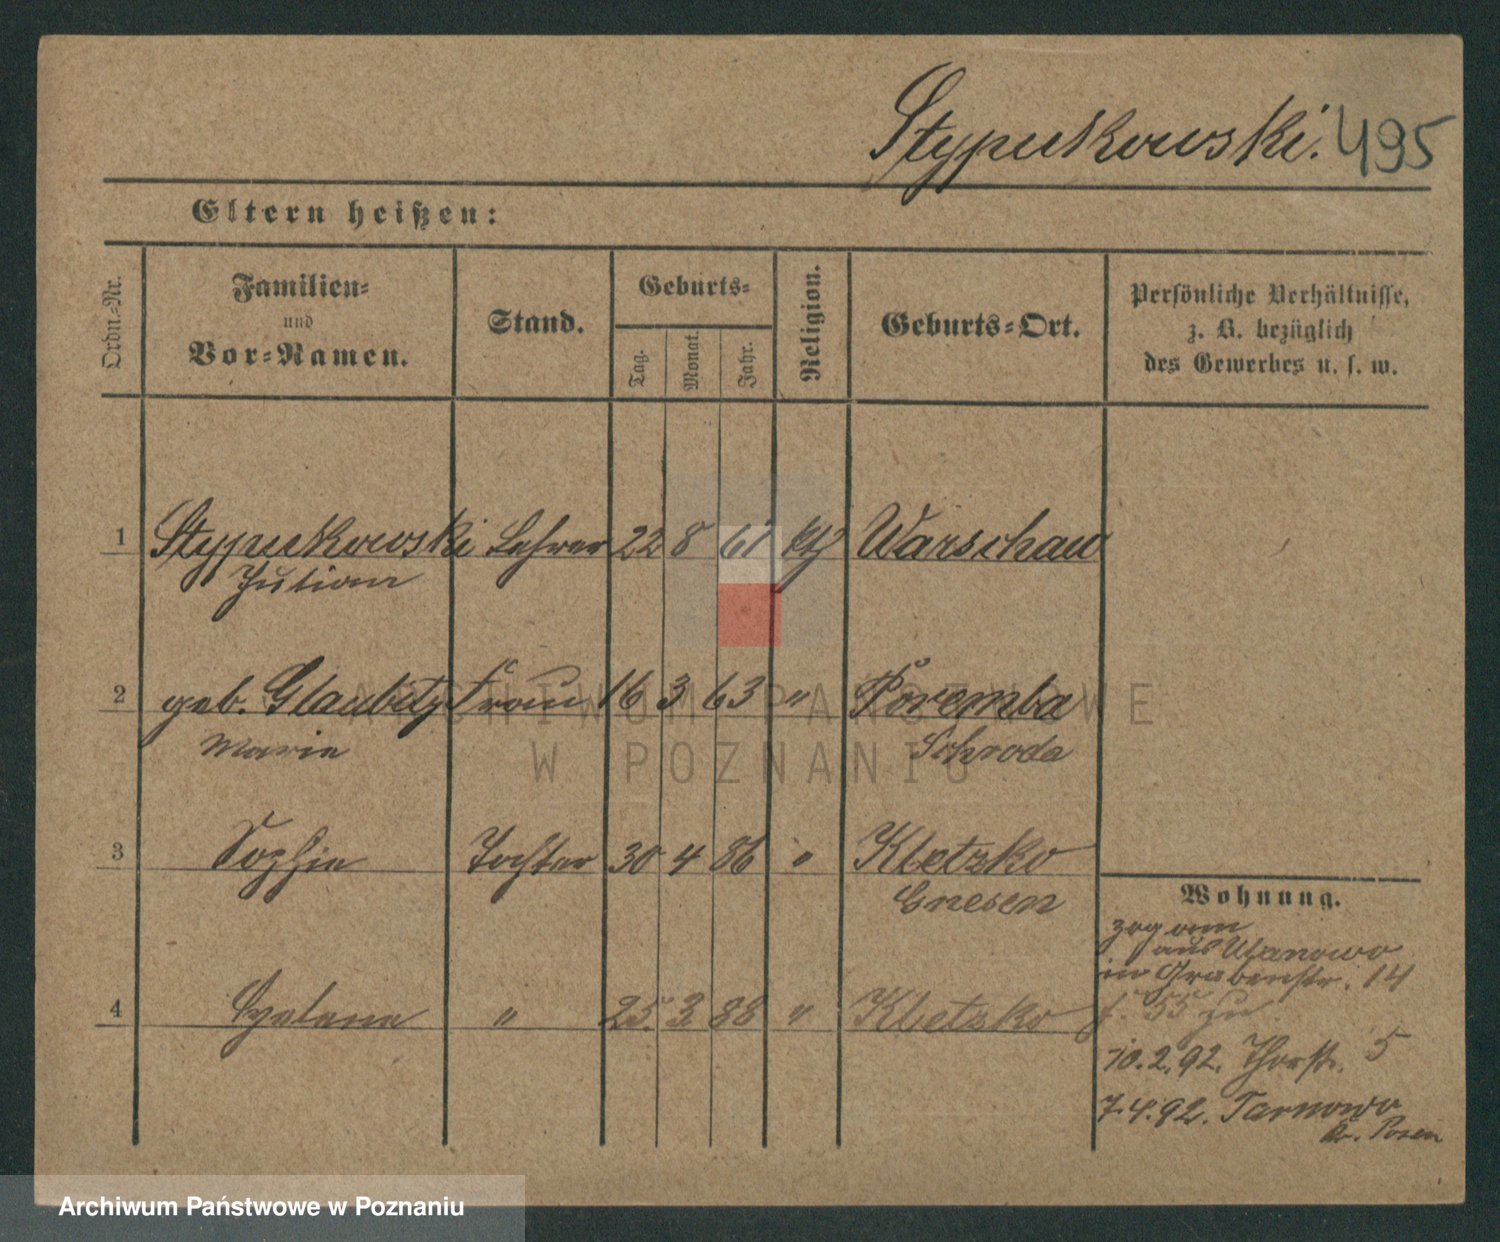 Stypukowski. 495
Eltern heißen:
Ordn.-Nr.
Familien-
und
Vor-Namen.
Stand.
Geburts-
Tag.
Monat.
Jahr.
Religion.
Geburts-Ort.
Persönliche Verhältnisse,
z. B. bezüglich
des Gewerbes u. s. w.
1 Stypukowski Lehrer 22 8 61 kth Warschau
Julian
2 geb. Glaubitz Frau 16 3 63 " Poremba
Marie Schroda
3 Sophie Tochter 30 4 86 " Kletzko
Gnesen
Wohnung.
zog vom
aus Ulanowo
in Grabenstr. 14
4 " 25. 3. 88 " Kletzko
55 zu.
10.2.92. Thorstr. 5
7.4.92. Tarnowo
Kr. Posen
ARCHIWUM PAŃSTWOWE
W POZNANIU
Archiwum Państwowe w Poznaniu